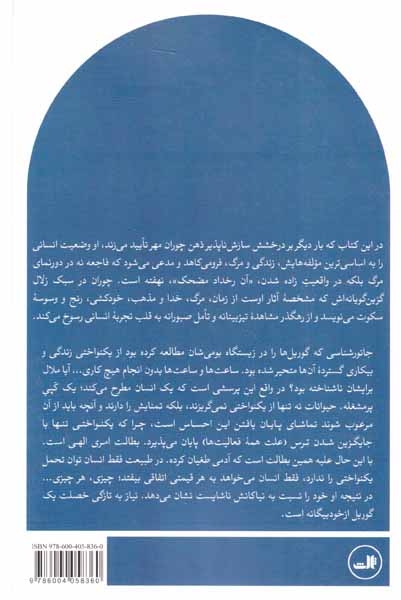 در این کتاب که بار دیگر بر درخشش سازش‌ناپذیر ذهن چوران مهر تأیید می‌زند، او وضعیت انسانی
را به اساسی‌ترین مؤلفه‌هایش، زندگی و مرگ، فرومی‌کاهد و مدعی می‌شود که فاجعه نه در دورنمای
مرگ بلکه در واقعیتِ زاده شدن، «آن رخداد مضحک»، نهفته است. چوران در سبک زلال
گزین‌گویانه‌اش که مشخصهٔ آثار اوست از زمان، مرگ، خدا و مذهب، خودکشی، رنج و وسوسهٔ
سکوت می‌نویسد و از رهگذر مشاهدهٔ تیزبینانه و تأمل صبورانه به قلب تجربهٔ انسانی رسوخ می‌کند.
جانورشناسی که گوریل‌ها را در زیستگاه بومی‌شان مطالعه کرده بود از یکنواختی زندگی و
بیکاری گستردهٔ آن‌ها متحیر شده بود. ساعت‌ها و ساعت‌ها بدون انجام هیچ کاری... آیا ملال
برایشان ناشناخته بود؟ در واقع این پرسشی است که یک انسان مطرح می‌کند؛ یک کَپیِ
پرمشغله. حیوانات نه تنها از یکنواختی نمی‌گریزند، بلکه تمنایش را دارند و آنچه باید از آن
مرعوب شوند تماشای پایان یافتن این احساس است، چرا که یکنواختی تنها با
جایگزین شدن ترس (علت همهٔ فعالیت‌ها) پایان می‌پذیرد. بطالت امری الهی است.
با این حال علیه همین بطالت است که آدمی طغیان کرده. در طبیعت فقط انسان توان تحمل
یکنواختی را ندارد، فقط انسان می‌خواهد به هر قیمتی اتفاقی بیفتد؛ چیزی، هر چیزی...
در نتیجه او خود را نسبت به نیاکانش ناشایست نشان می‌دهد. نیاز به تازگی خصلت یک
گوریل ازخودبیگانه است.
ISBN 978-600-405-836-0
9786004058360
ثالث